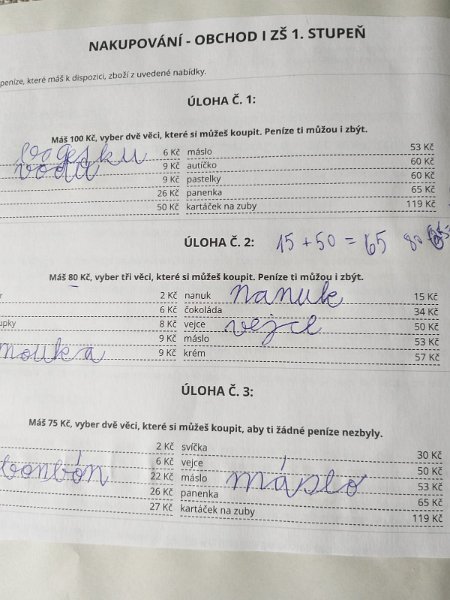 NAKUPOVÁNÍ - OBCHOD I ZŠ 1. STUPEŇ
peníze, které máš k dispozici, zboží z uvedené nabídky.
ÚLOHA Č. 1:
Máš 100 Kč, vyber dvě věci, které si můžeš koupit. Peníze ti můžou i zbýt.
6 Kč máslo 53 Kč
voda 9 Kč autíčko 60 Kč
9 Kč pastelky 60 Kč
26 Kč panenka 65 Kč
50 Kč kartáček na zuby 119 Kč
ÚLOHA Č. 2: 15 + 50 = 65 80
Máš 80 Kč, vyber tři věci, které si můžeš koupit. Peníze ti můžou i zbýt.
2 Kč nanuk nanuk 15 Kč
6 Kč čokoláda 34 Kč
upky 8 Kč vejce vejce 50 Kč
9 Kč máslo 53 Kč
mouka 9 Kč krém 57 Kč
ÚLOHA Č. 3:
Máš 75 Kč, vyber dvě věci, které si můžeš koupit, aby ti žádné peníze nezbyly.
2 Kč svíčka 30 Kč
6 Kč vejce 50 Kč
bonbón 22 Kč máslo máslo 53 Kč
26 Kč panenka 65 Kč
27 Kč kartáček na zuby 119 Kč